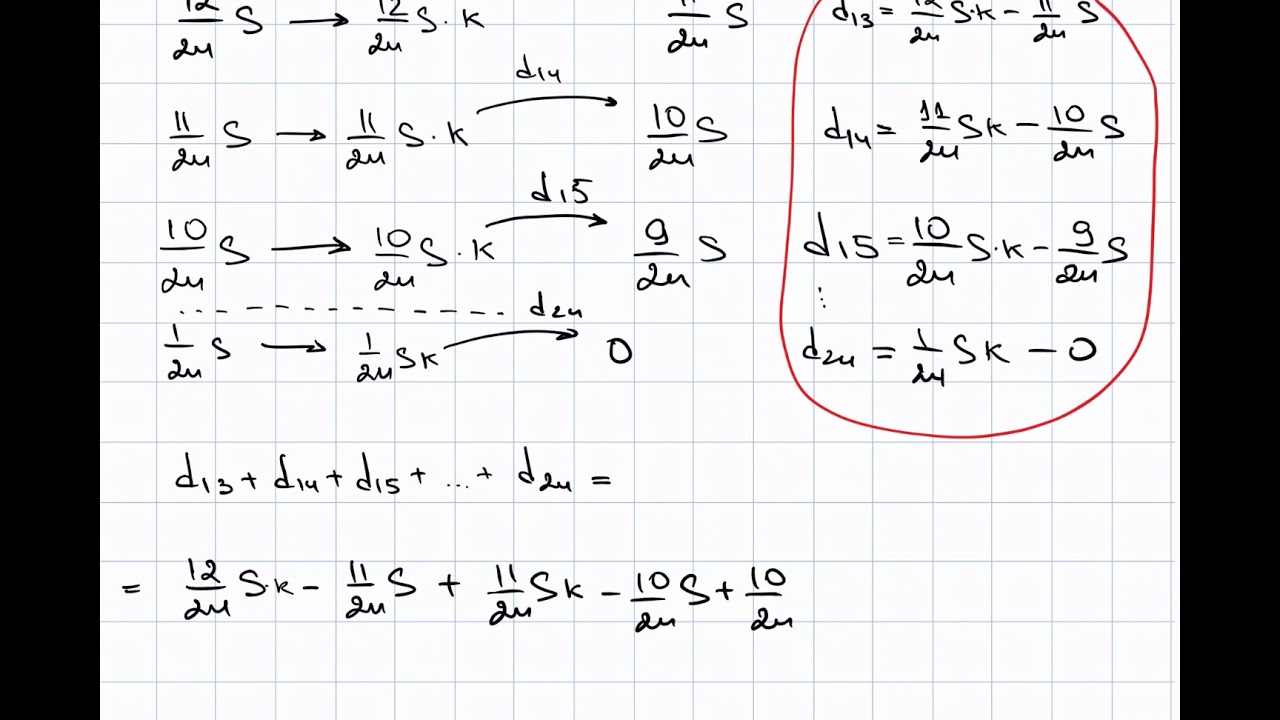 12/24 S → 12/24 S·k   11/24 S   d13 = 12/24 S·k − 11/24 S
d14
11/24 S → 11/24 S·k   10/24 S   d14 = 11/24 Sk − 10/24 S
d15
10/24 S → 10/24 S·k   9/24 S   d15 = 10/24 S·k − 9/24 S
d24
1/24 S → 1/24 Sk   0   d24 = 1/24 Sk − 0
d13 + d14 + d15 + ... + d24 =
= 12/24 S·k − 11/24 S + 11/24 Sk − 10/24 S + 10/24